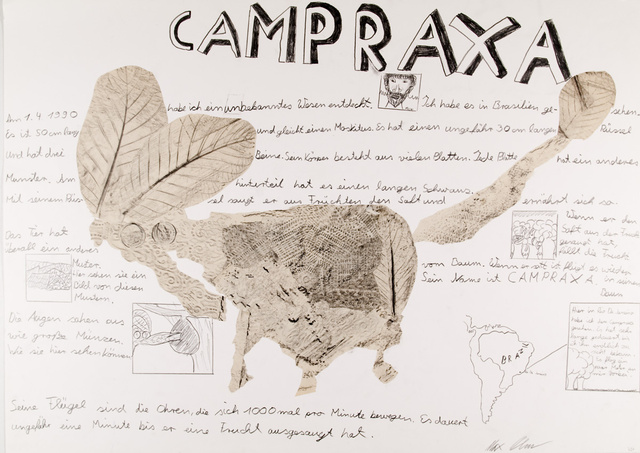 CAMPRAXA
Am 1.4 1990 habe ich ein unbekanntes Wesen entdeckt. Ich habe es in Brasilien ge- sehen.
Es ist 50 cm lang und gleicht einem Moskitus. Es hat einen ungefähr 30 cm langen Rüssel
und hat drei Beine. Sein Körper besteht aus vielen Platten. Jede Platte hat ein anderes
Munster. Am hinterteil hat es einen langen Schwanz.
Mit seinem Rüs- sel saugt er aus Früchten den Saft und ernährt sich so.
Das Tier hat
überall ein anderes
Muster.
Hier sehen sie ein
Bild von diesen
Mustern.
Die Augen sehen aus
wie große Münzen.
Wie sie hier sehen können
Wenn er den
Saft aus der Frucht
gesaugt hat,
fällt die Frucht
vom Baum. Wenn er satt ist fliegt es wieder
Sein Name ist CAMPRAXA. in seinen
Baum
BRAZIL
Seine Flügel sind die Ohren, die sich 1000 mal pro Minute bewegen. Es dauert
ungefähr eine Minute bis er eine Frucht ausgesaugt hat.